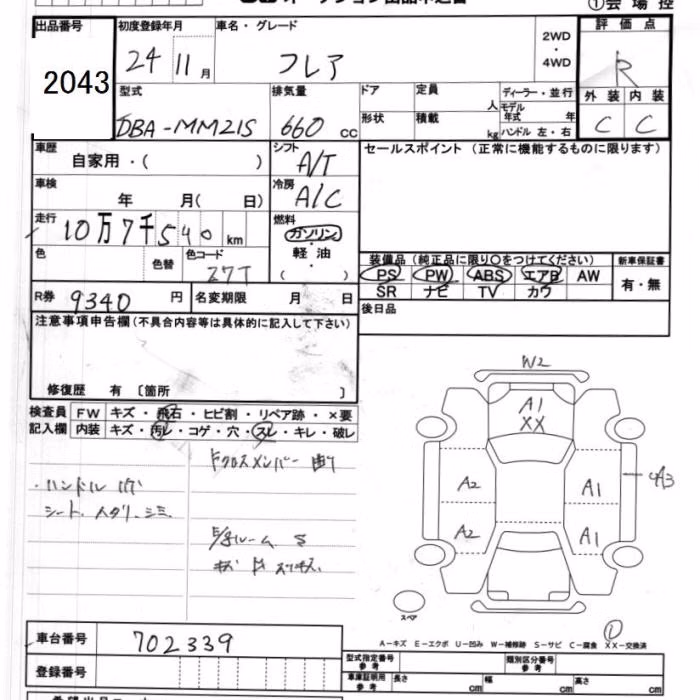 ①会場控
出品番号 初度登録年月 車名・グレード 2WD・4WD 評価点
2043 24 11月 フレア R
型式 排気量 ドア 定員 人 ディーラー・並行 外装 内装
DBA-MM21S 660 cc 形状 積載 kg モデル年式 年 ハンドル 左・右 C C
車歴 自家用・( ) シフト A/T セールスポイント(正常に機能するものに限ります)
車検 年 月( 日) 冷房 A/C
走行 10万7千540km 燃料 ガソリン
軽油
( )
色 色替 色コード Z7T
装備品(純正品に限り○をつけてください) 新車保証書
PS PW ABS エアB AW 有・無
SR ナビ TV カワ
R券 9340円 名変期限 月 日 後日品
注意事項申告欄(不具合内容等は具体的に記入して下さい)
修復歴 有〔箇所 〕
検査員記入欄 FW キズ・飛石・ヒビ割・リペア跡・×要
内装 キズ・汚レ・コゲ・穴・スレ・キレ・破レ
ドクロスメンバー 曲り
シート
W2
A1
XX
A2 A1 A3
A2 A1
スペア
①
A-キズ E-エクボ U-凹み W-補修跡 S-サビ C-腐食 XX-交換済
車台番号 702339
登録番号
型式指定番号 参考 類別区分番号 参考
車庫証明用 参考 長さ cm 幅 cm 高さ cm